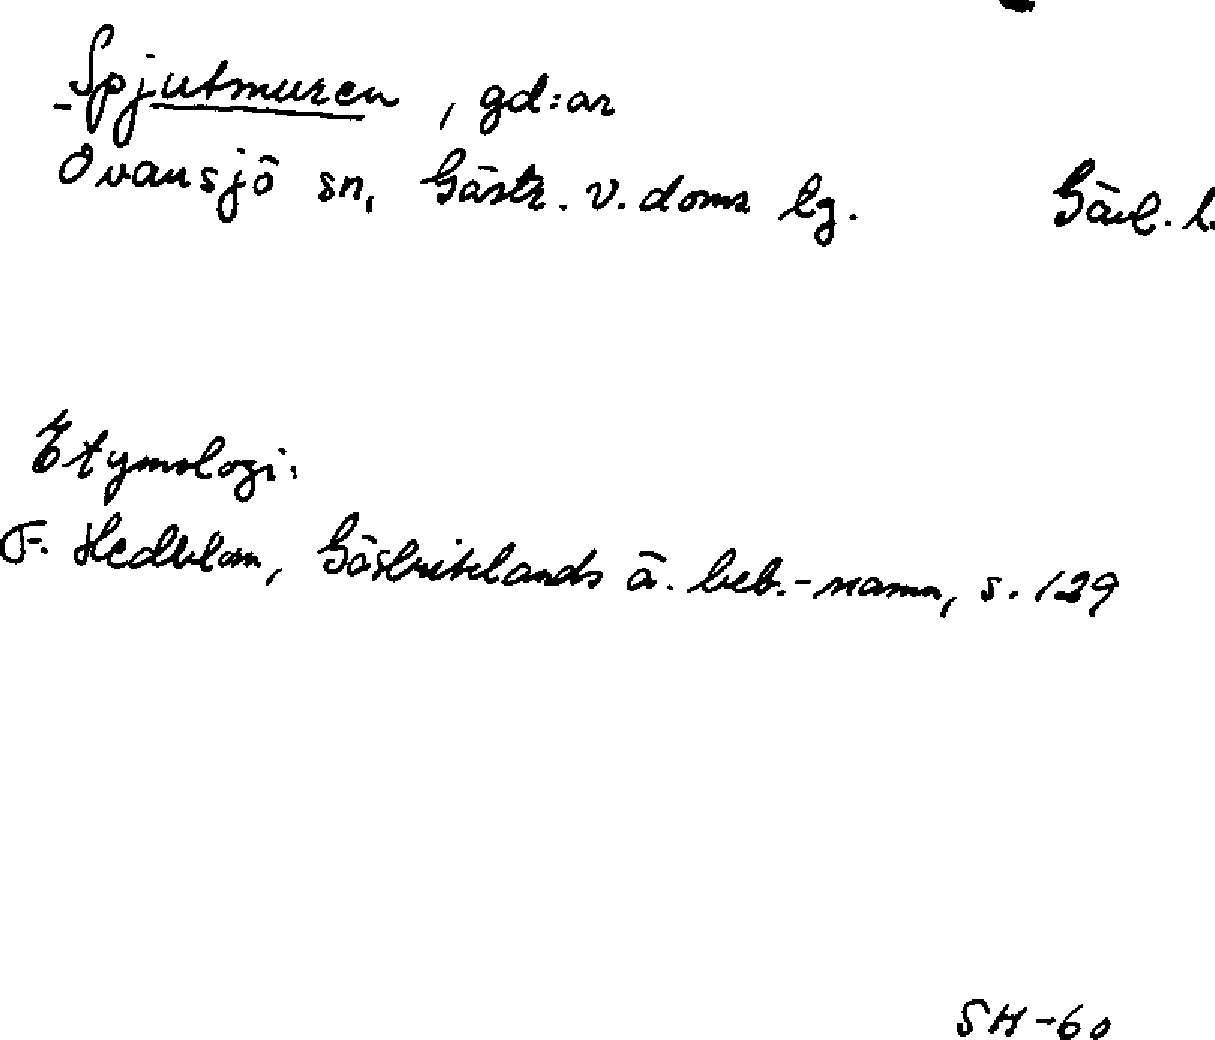 Spjutmuren, gd:ar
Ovansjö sn, Gästr. v. doms lg. Gävl. l.
Etymologi:
F. Hedblom, Gästriklands ä. beb.-namn, s. 129
SH-60